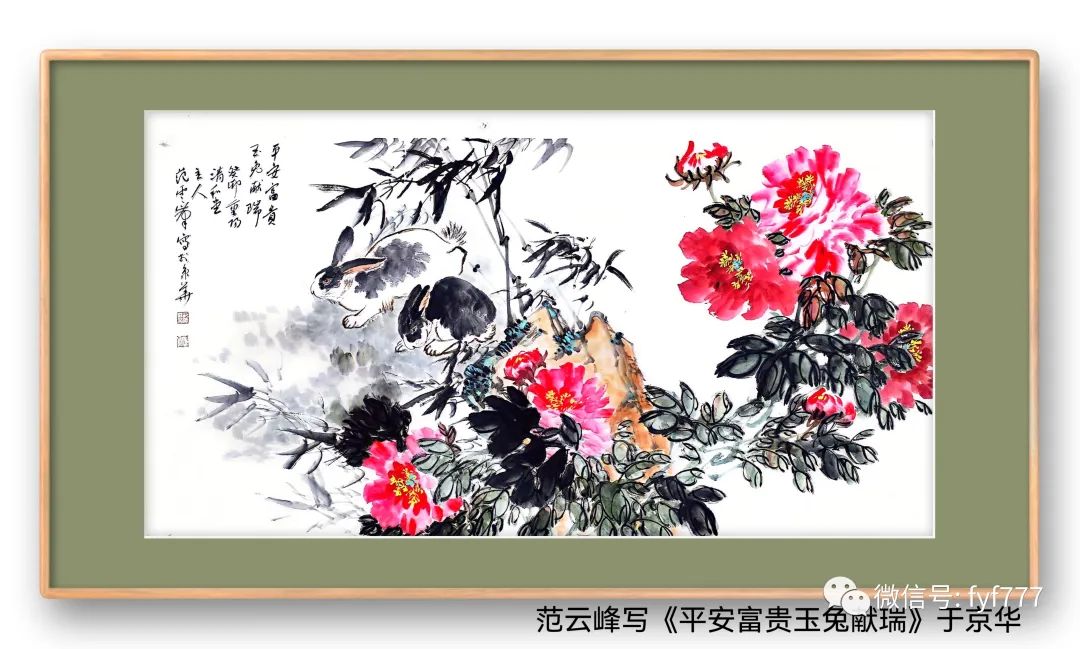 平安富貴
玉兔献瑞
癸卯重阳
清和堂
主人
范云峰写於京華
微信号: fyf777
范云峰写《平安富贵玉兔献瑞》于京华